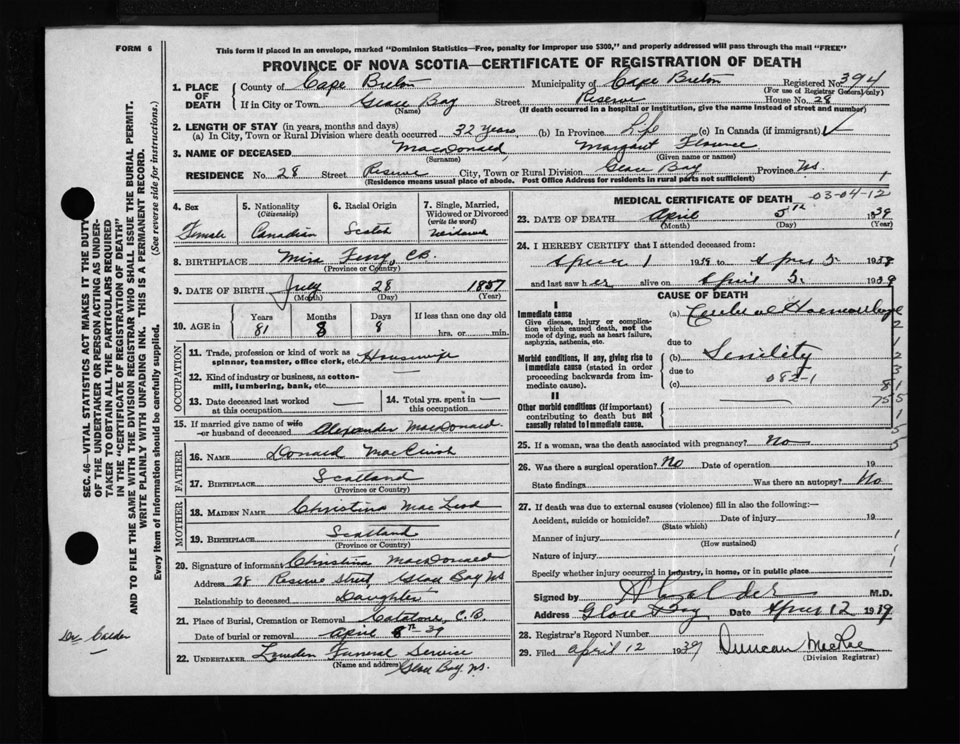 FORM 6
This form if placed in an envelope, marked "Dominion Statistics—Free, penalty for improper use $300," and properly addressed will pass through the mail "FREE"
PROVINCE OF NOVA SCOTIA—CERTIFICATE OF REGISTRATION OF DEATH
1. PLACE OF DEATH County of Cape Breton Municipality of Cape Breton Registered No. 394
(For use of Registrar General only)
If in City or Town Glace Bay Street Reserve House No. 28
(Name) (If death occurred in a hospital or institution, give the name instead of street and number)
2. LENGTH OF STAY (in years, months and days)
(a) In City, Town or Rural Division where death occurred 32 years (b) In Province Life (c) In Canada (if immigrant)
3. NAME OF DECEASED MacDonald, Margaret Florence
(Surname) (Given name or names)
RESIDENCE No. 28 Street Reserve City, Town or Rural Division Glace Bay Province NS.
(Residence means usual place of abode. Post Office Address for residents in rural parts not sufficient) 1
4. Sex Female
5. Nationality (Citizenship) Canadian
6. Racial Origin Scotch
7. Single, Married, Widowed or Divorced (write the word) Widowed
8. BIRTHPLACE Ferry, CB.
(Province or Country)
9. DATE OF BIRTH July 28 1857
(Month) (Day) (Year)
10. AGE in Years Months Days If less than one day old
81 8 8 hrs. or min.
OCCUPATION
11. Trade, profession or kind of work as spinner, teamster, office clerk, etc. Housewife
12. Kind of industry or business, as cotton-mill, lumbering, bank, etc.
13. Date deceased last worked at this occupation —
14. Total yrs. spent in this occupation —
15. If married give name of wife or husband of deceased Alexander MacDonald
FATHER
16. NAME Donald
17. BIRTHPLACE Scotland
(Province or Country)
MOTHER
18. MAIDEN NAME Christina MacLeod
19. BIRTHPLACE Scotland
(Province or Country)
20. Signature of informant Christina MacDonald
Address 28 Reserve Street, Glace Bay NS
Relationship to deceased Daughter
21. Place of Burial, Cremation or Removal Catalone, C.B.
Date of burial or removal April 8th - 39
22. UNDERTAKER Funeral Service
(Name and address) Glace Bay, NS.
MEDICAL CERTIFICATE OF DEATH 03-04-12
23. DATE OF DEATH April 5th 1939
(Month) (Day) (Year)
24. I HEREBY CERTIFY that I attended deceased from:
April 1 1939 to April 5 1939
and last saw her alive on April 5. 1939
CAUSE OF DEATH
I
Immediate cause
Give disease, injury or complication which caused death, not the mode of dying, such as heart failure, asphyxia, asthenia, etc.
(a) Cerebral Haemorrhage
due to
Morbid conditions, if any, giving rise to immediate cause (stated in order proceeding backwards from immediate cause).
(b) Senility
due to
(c) 082-1
II
Other morbid conditions (if important) contributing to death but not causally related to immediate cause.
25. If a woman, was the death associated with pregnancy? No
26. Was there a surgical operation? No Date of operation 19
State findings Was there an autopsy? No
27. If death was due to external causes (violence) fill in also the following:—
Accident, suicide or homicide? Date of injury 19
(State which)
Manner of injury 1
(How sustained)
Nature of injury 1
Specify whether injury occurred in industry, in home, or in public place
Signed by Calder M.D.
Address Glace Bay Date April 12 1939
28. Registrar's Record Number
29. Filed April 12 1939 Duncan MacRae
(Division Registrar)
SEC. 46—VITAL STATISTICS ACT MAKES IT THE DUTY
OF THE UNDERTAKER OR PERSON ACTING AS UNDER-
TAKER TO OBTAIN ALL THE PARTICULARS REQUIRED
IN THE "CERTIFICATE OF REGISTRATION OF DEATH"
AND TO FILE THE SAME WITH THE DIVISION REGISTRAR WHO SHALL ISSUE THE BURIAL PERMIT.
WRITE PLAINLY WITH UNFADING INK. THIS IS A PERMANENT RECORD.
Every item of information should be carefully supplied. (See reverse side for instructions.)
Dr. Calder